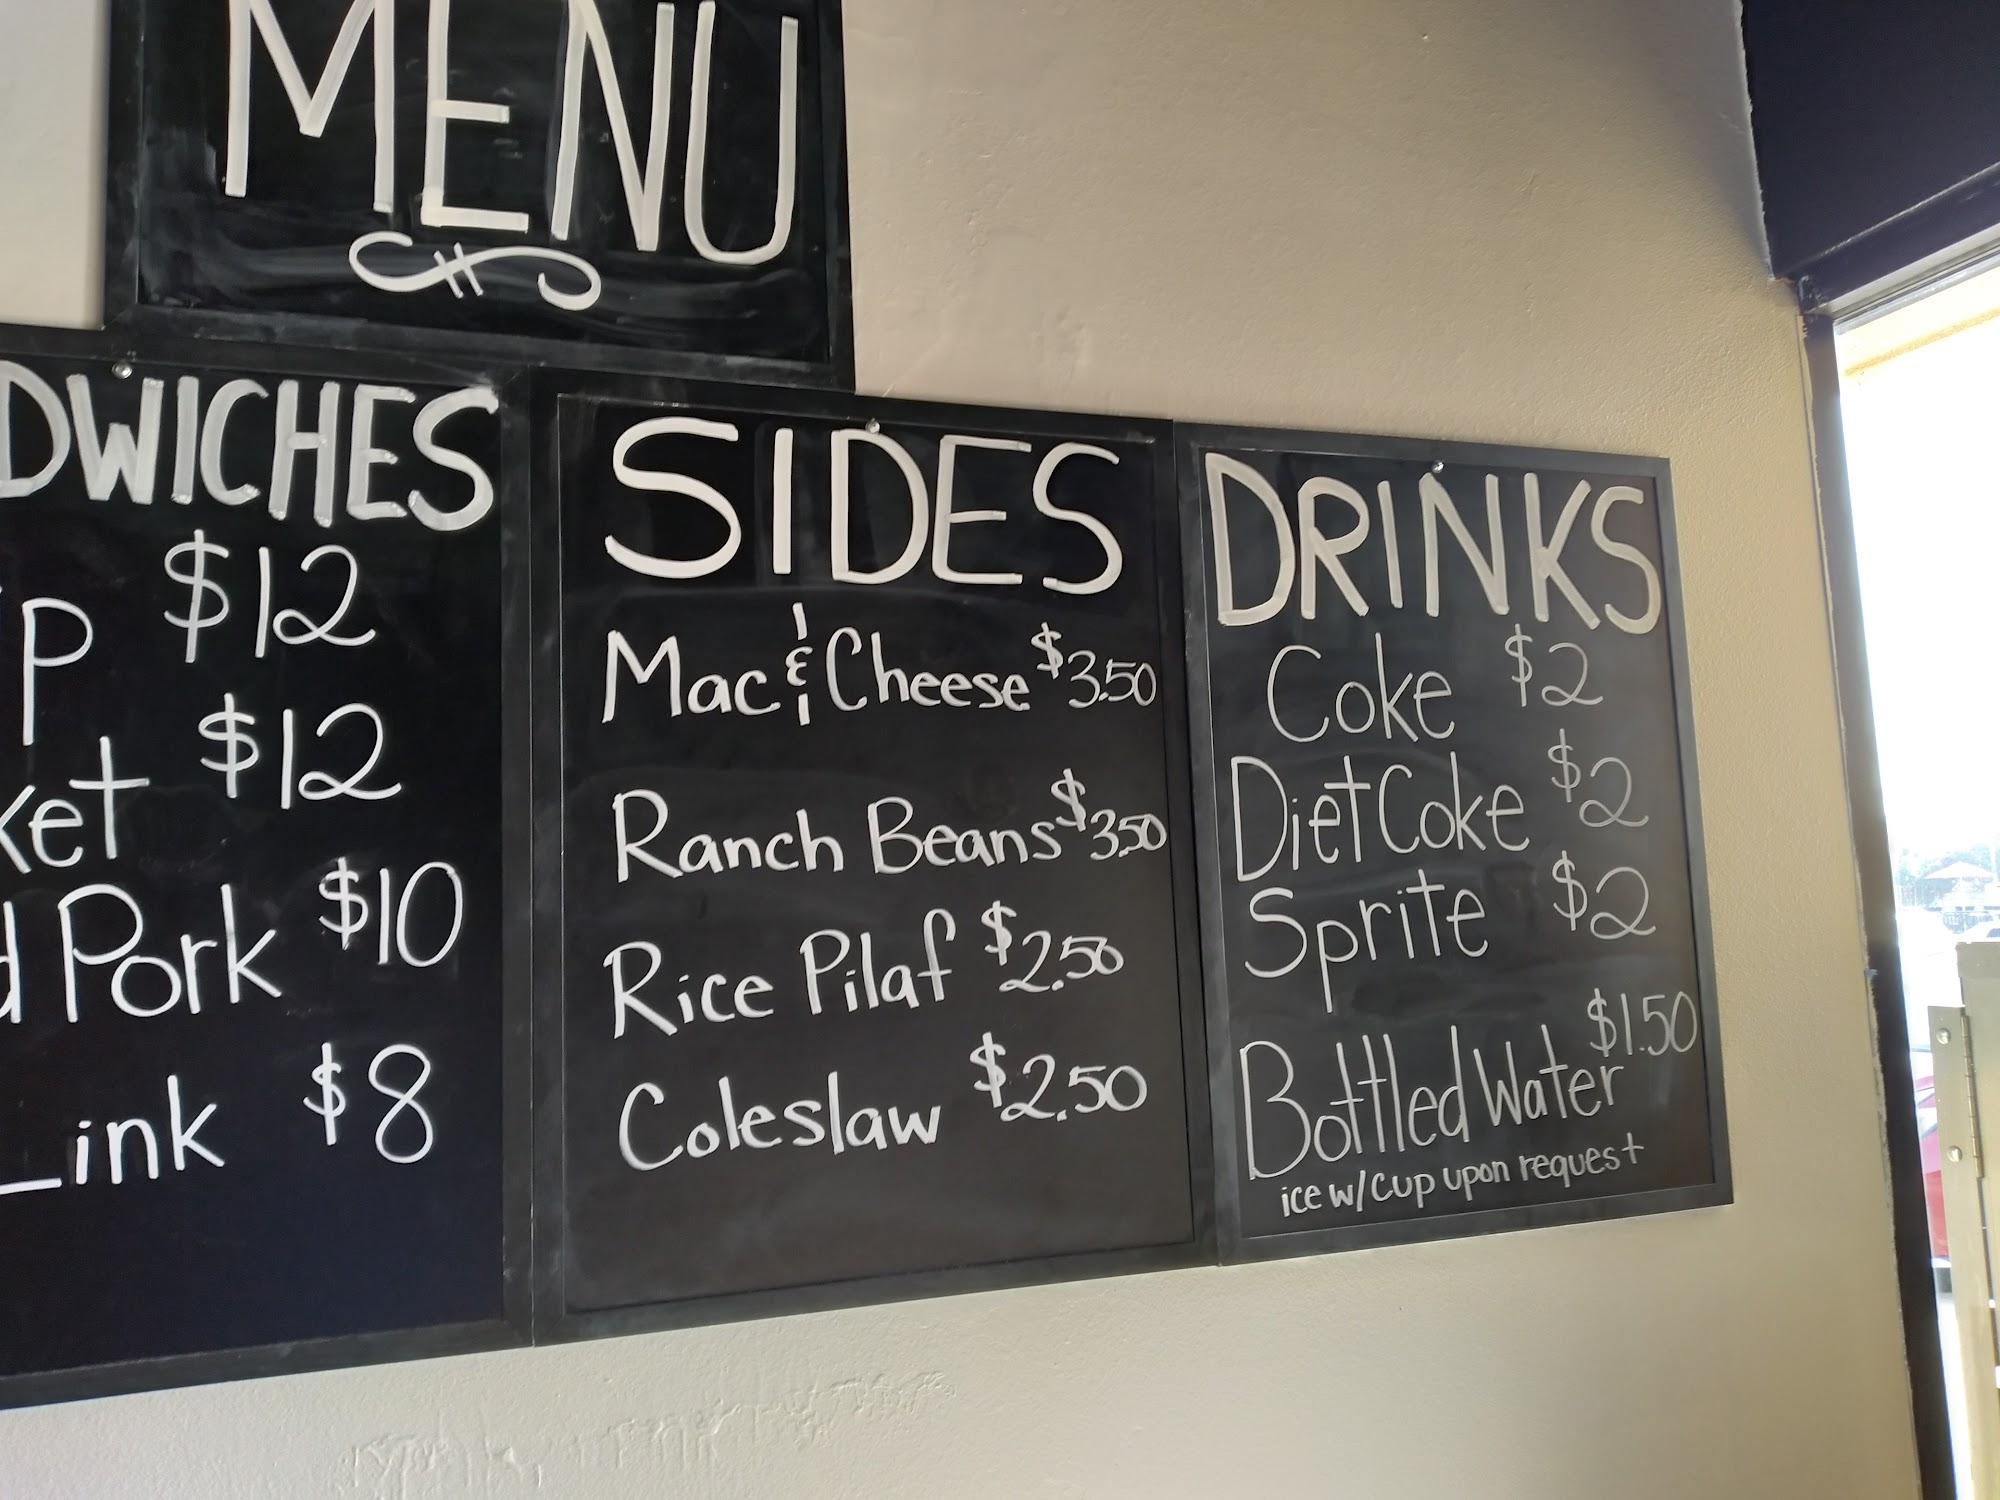 MENU
DWICHES
P $12
ket $12
d Pork $10
Link $8
SIDES
Mac & Cheese $3.50
Ranch Beans $3.50
Rice Pilaf $2.50
Coleslaw $2.50
DRINKS
Coke $2
Diet Coke $2
Sprite $2
Bottled Water $1.50
ice w/cup upon request